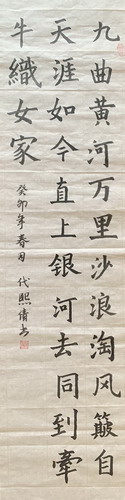 九曲黄河万里沙浪淘风簸自
天涯如今直上银河去同到牽
牛織女家
癸卯年春月 代熙倩书